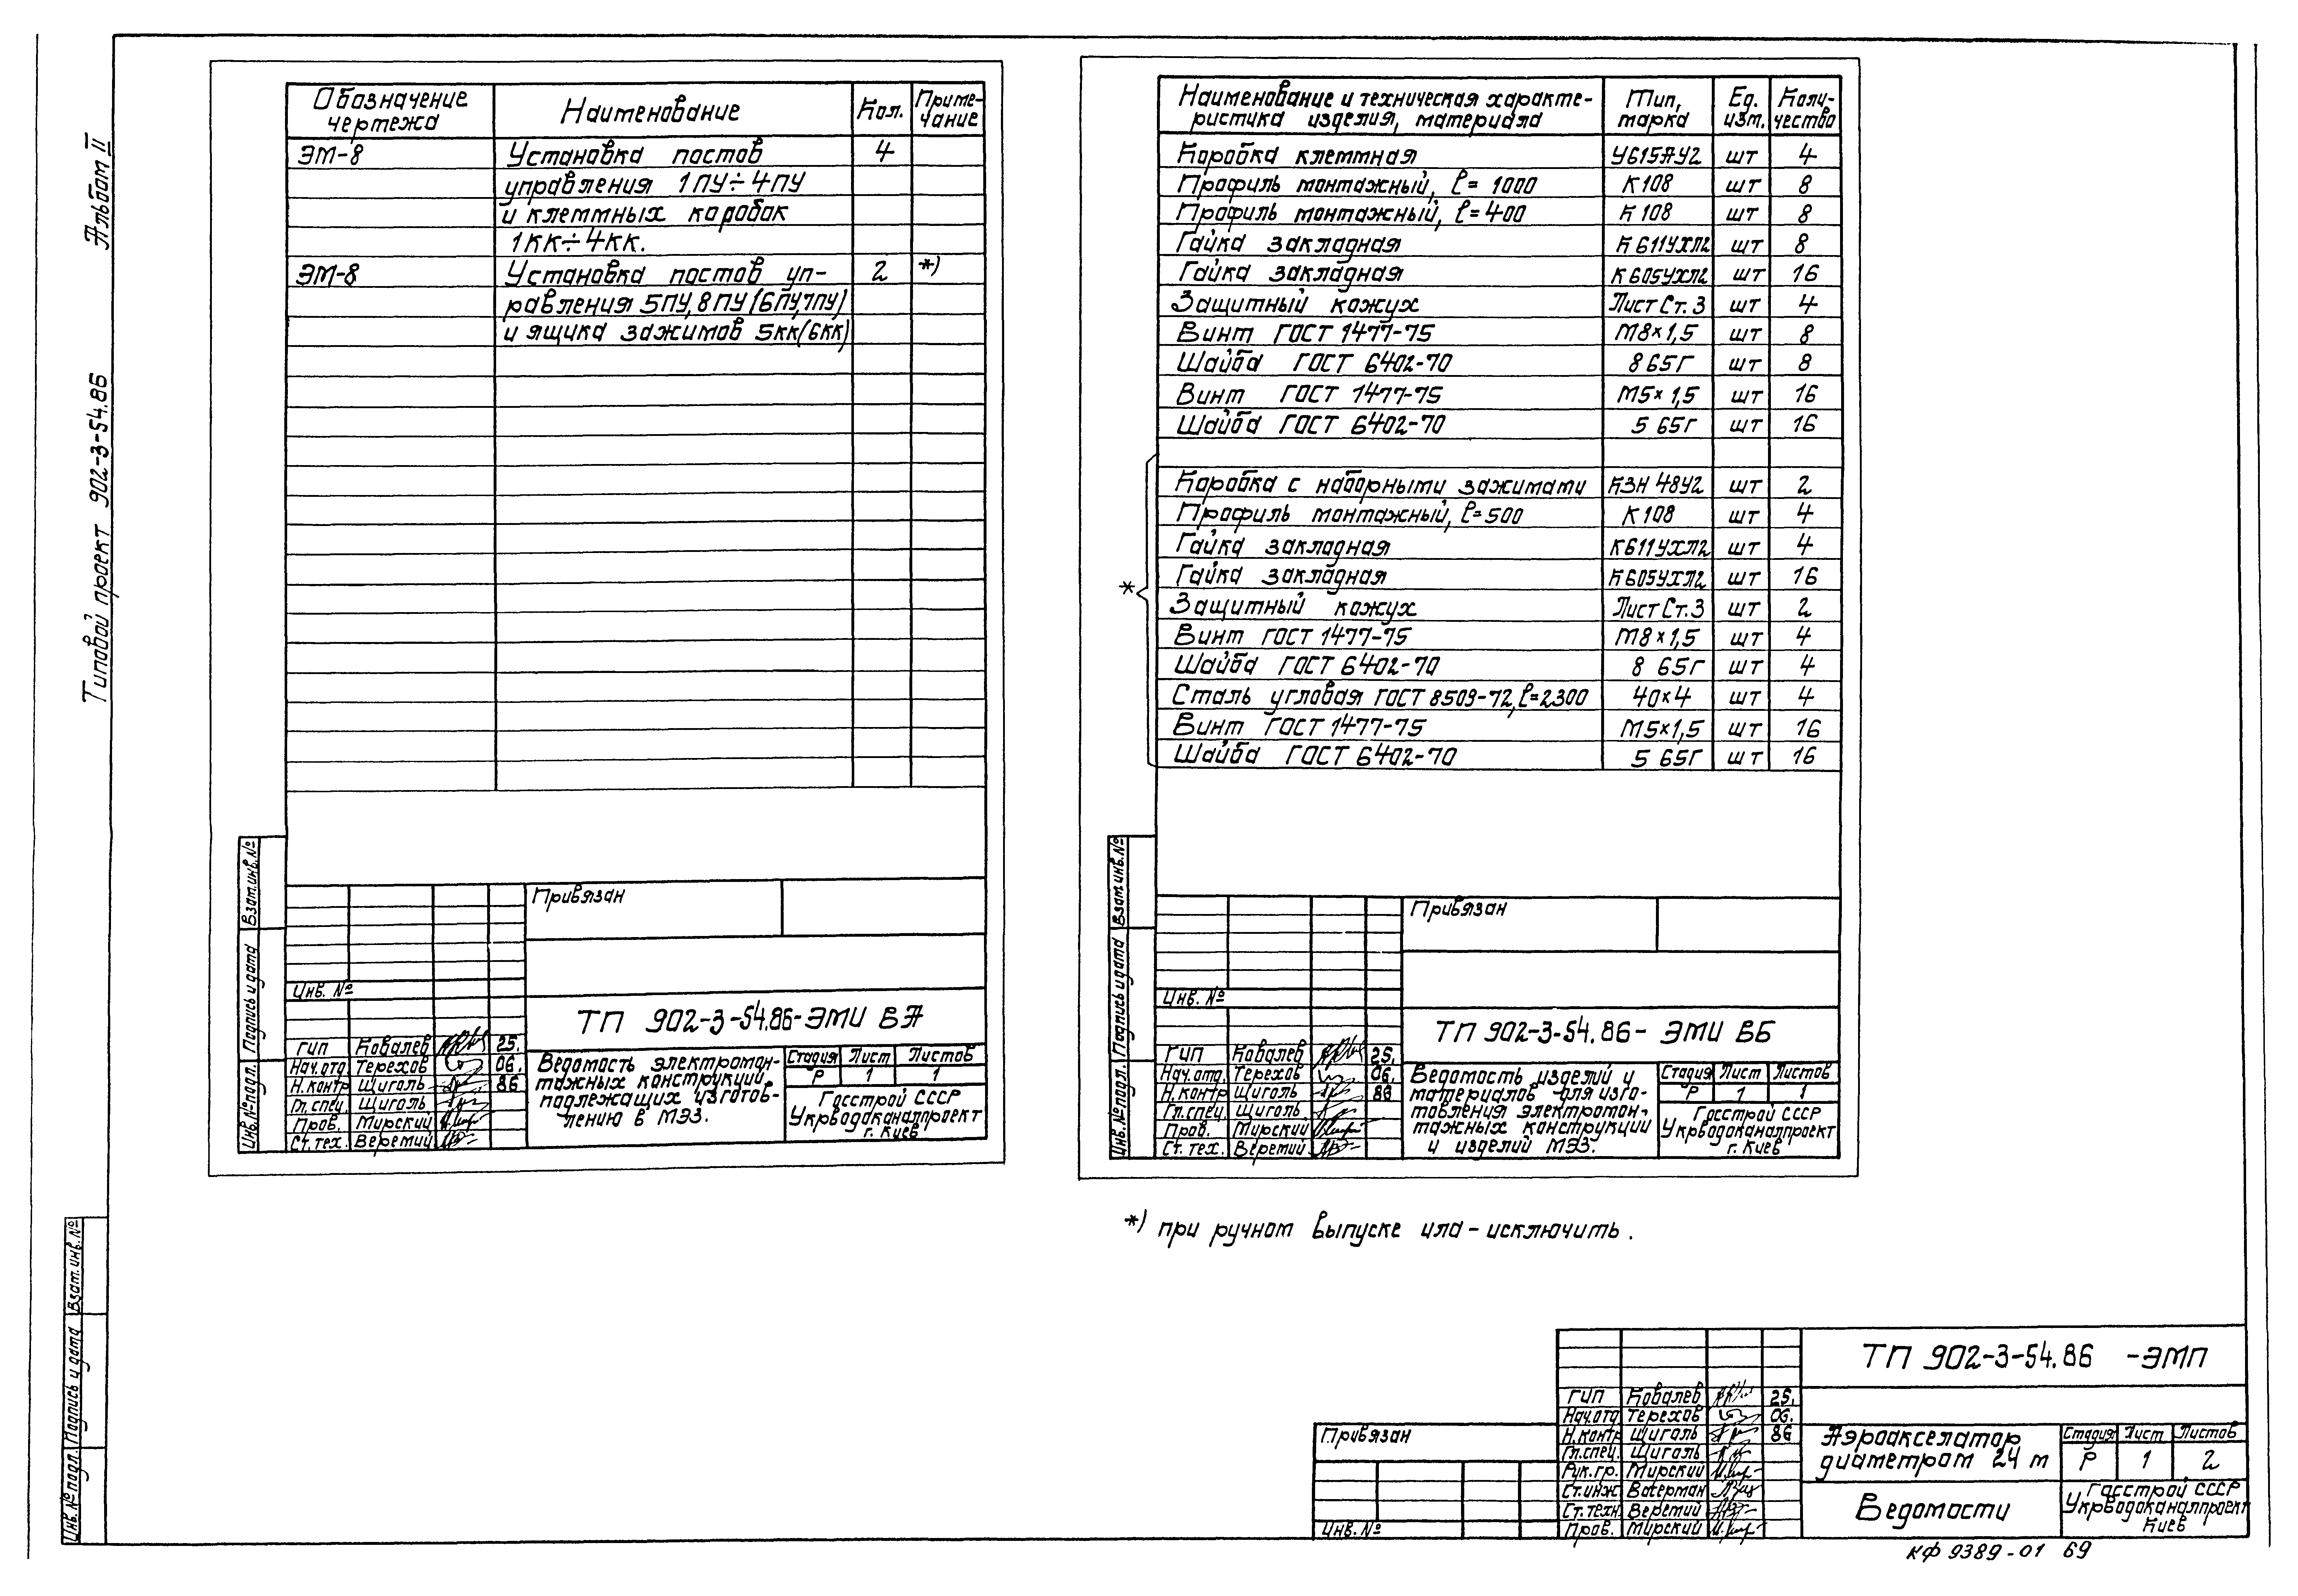 Альбом II
Типовой проект 902-3-54.86
Обозначение чертежа | Наименование | Кол. | Примечание
ЭМ-8 | Установка постов | 4
управления 1ПУ÷4ПУ
и клеммных коробок
1КК÷4КК.
ЭМ-8 | Установка постов уп- | 2 | *)
равления 5ПУ, 8ПУ (6ПУ, 7ПУ)
и ящика зажимов 5КК(6КК)
Взам.инв.№
Подпись и дата
Инв.№подл.
Привязан
Инв. №
ТП 902-3-54.86-ЭМИ ВА
ГИП Ковалев 25.
Нач.отд. Терехов 06.
Н.контр Щиголь 86
Гл.спец. Щиголь
Пров. Мирский
Ст.тех. Веремий
Ведомость электромон-
тажных конструкций
подлежащих изготов-
лению в МЭЗ.
Стадия | Лист | Листов
Р | 1 | 1
Госстрой СССР
Укрводоканалпроект
г. Киев
Наименование и техническая характе-
ристика изделия, материала | Тип, марка | Ед. изм. | Количество
Коробка клеммная | У615АУ2 | шт | 4
Профиль монтажный, ℓ=1000 | К108 | шт | 8
Профиль монтажный, ℓ=400 | К108 | шт | 8
Гайка закладная | К611УХЛ2 | шт | 8
Гайка закладная | К605УХЛ2 | шт | 16
Защитный кожух | Лист Ст.3 | шт | 4
Винт ГОСТ 1477-75 | М8×1,5 | шт | 8
Шайба ГОСТ 6402-70 | 8 65Г | шт | 8
Винт ГОСТ 1477-75 | М5×1,5 | шт | 16
Шайба ГОСТ 6402-70 | 5 65Г | шт | 16
*
Коробка с наборными зажимами | КЗН 48У2 | шт | 2
Профиль монтажный, ℓ=500 | К108 | шт | 4
Гайка закладная | К611УХЛ2 | шт | 4
Гайка закладная | К605УХЛ2 | шт | 16
Защитный кожух | Лист Ст.3 | шт | 2
Винт ГОСТ 1477-75 | М8×1,5 | шт | 4
Шайба ГОСТ 6402-70 | 8 65Г | шт | 4
Сталь угловая ГОСТ 8509-72, ℓ=2300 | 40×4 | шт | 4
Винт ГОСТ 1477-75 | М5×1,5 | шт | 16
Шайба ГОСТ 6402-70 | 5 65Г | шт | 16
Взам.инв.№
Подпись и дата
Инв.№подл.
Привязан
Инв. №
ТП 902-3-54.86- ЭМИ ВБ
ГИП Ковалев 25.
Нач.отд. Терехов 06.
Н.контр Щиголь 86
Гл.спец. Щиголь
Пров. Мирский
Ст.тех. Веремий
Ведомость изделий и
материалов для изго-
товления электромон-
тажных конструкций
и изделий МЭЗ.
Стадия | Лист | Листов
Р | 1 | 1
Госстрой СССР
Укрводоканалпроект
г. Киев
*) при ручном выпуске ила - исключить.
Взам.инв.№
Подпись и дата
Инв.№подл.
Привязан
Инв. №
ТП 902-3-54.86 -ЭМП
ГИП Ковалев 25.
Нач.отд Терехов 06.
Н.контр Щиголь 86
Гл.спец. Щиголь
Рук.гр. Мирский
Ст.инж Ватерман
Ст.техн Веремий
Пров. Мирский
Аэроакселатор
диаметром 24 м
Стадия | Лист | Листов
Р | 1 | 2
Ведомости
Госстрой СССР
Укрводоканалпроект
Киев
КФ 9389-01 69